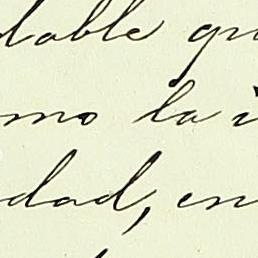 dable
mo la
dad, en